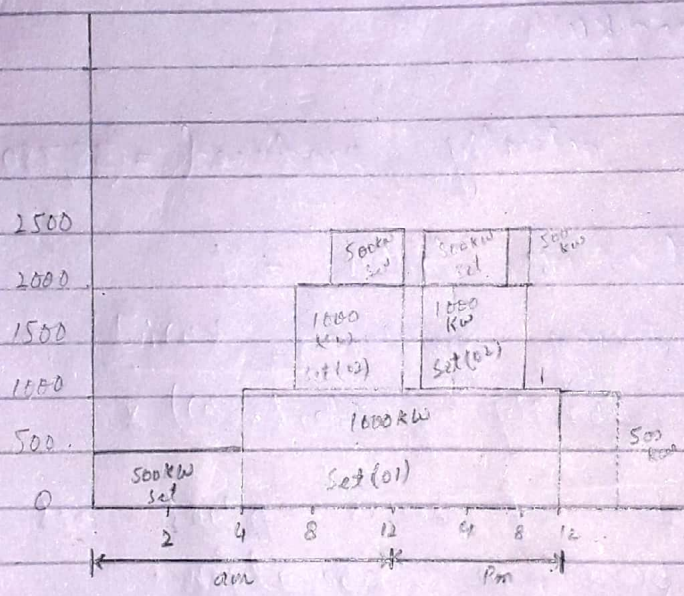 2500
2000
1500
1000
500
0
500kw
set
500kW
set
500
kw
1000
Kw
set(02)
1000
Kw
set(02)
1000KW
Set(01)
500KW
set
500
2 4 8 12 4 8 12
am Pm